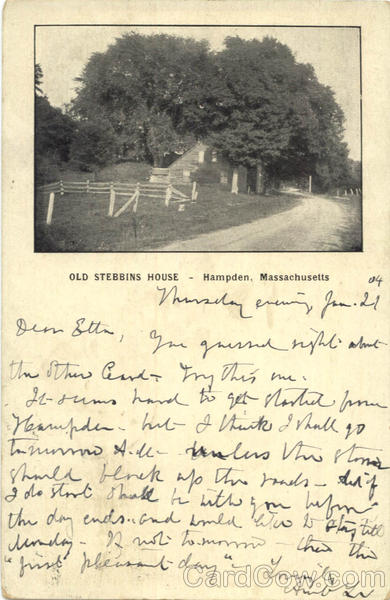 OLD STEBBINS HOUSE - Hampden, Massachusetts
Thursday evening Jan. 21 04
Dear Etta, You guessed right about
the other Card - Try this one.
It seems hard to get started from
Hampden - but I think I shall go
tomorrow A.M. unless the storm
should block up the roads - if
I do start shall be with you before
the day ends and would like to stay till
Monday - If not tomorrow - then the
"first pleasant day" -
CardCow.com